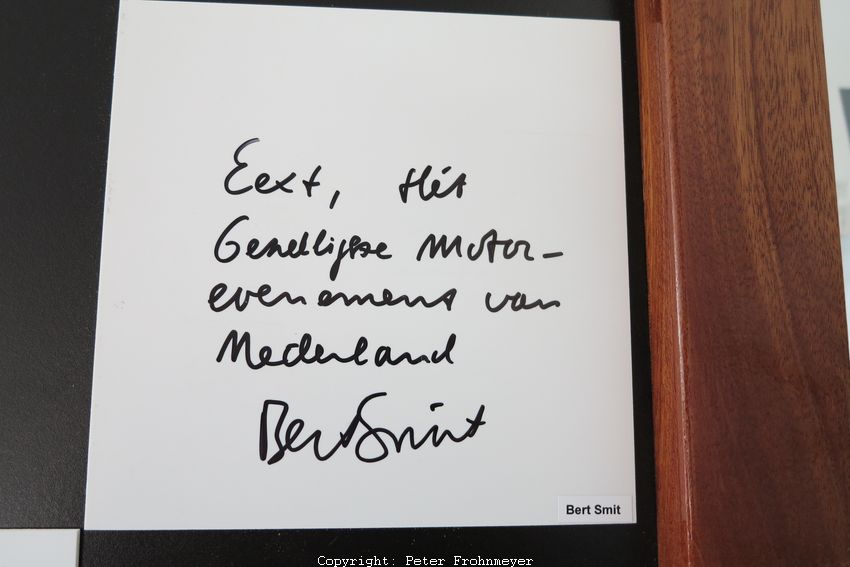 Eext, Hét
Gezelligste Motor-
evenement van
Nederland
Bert Smit
Bert Smit
Copyright: Peter Frohnmeyer